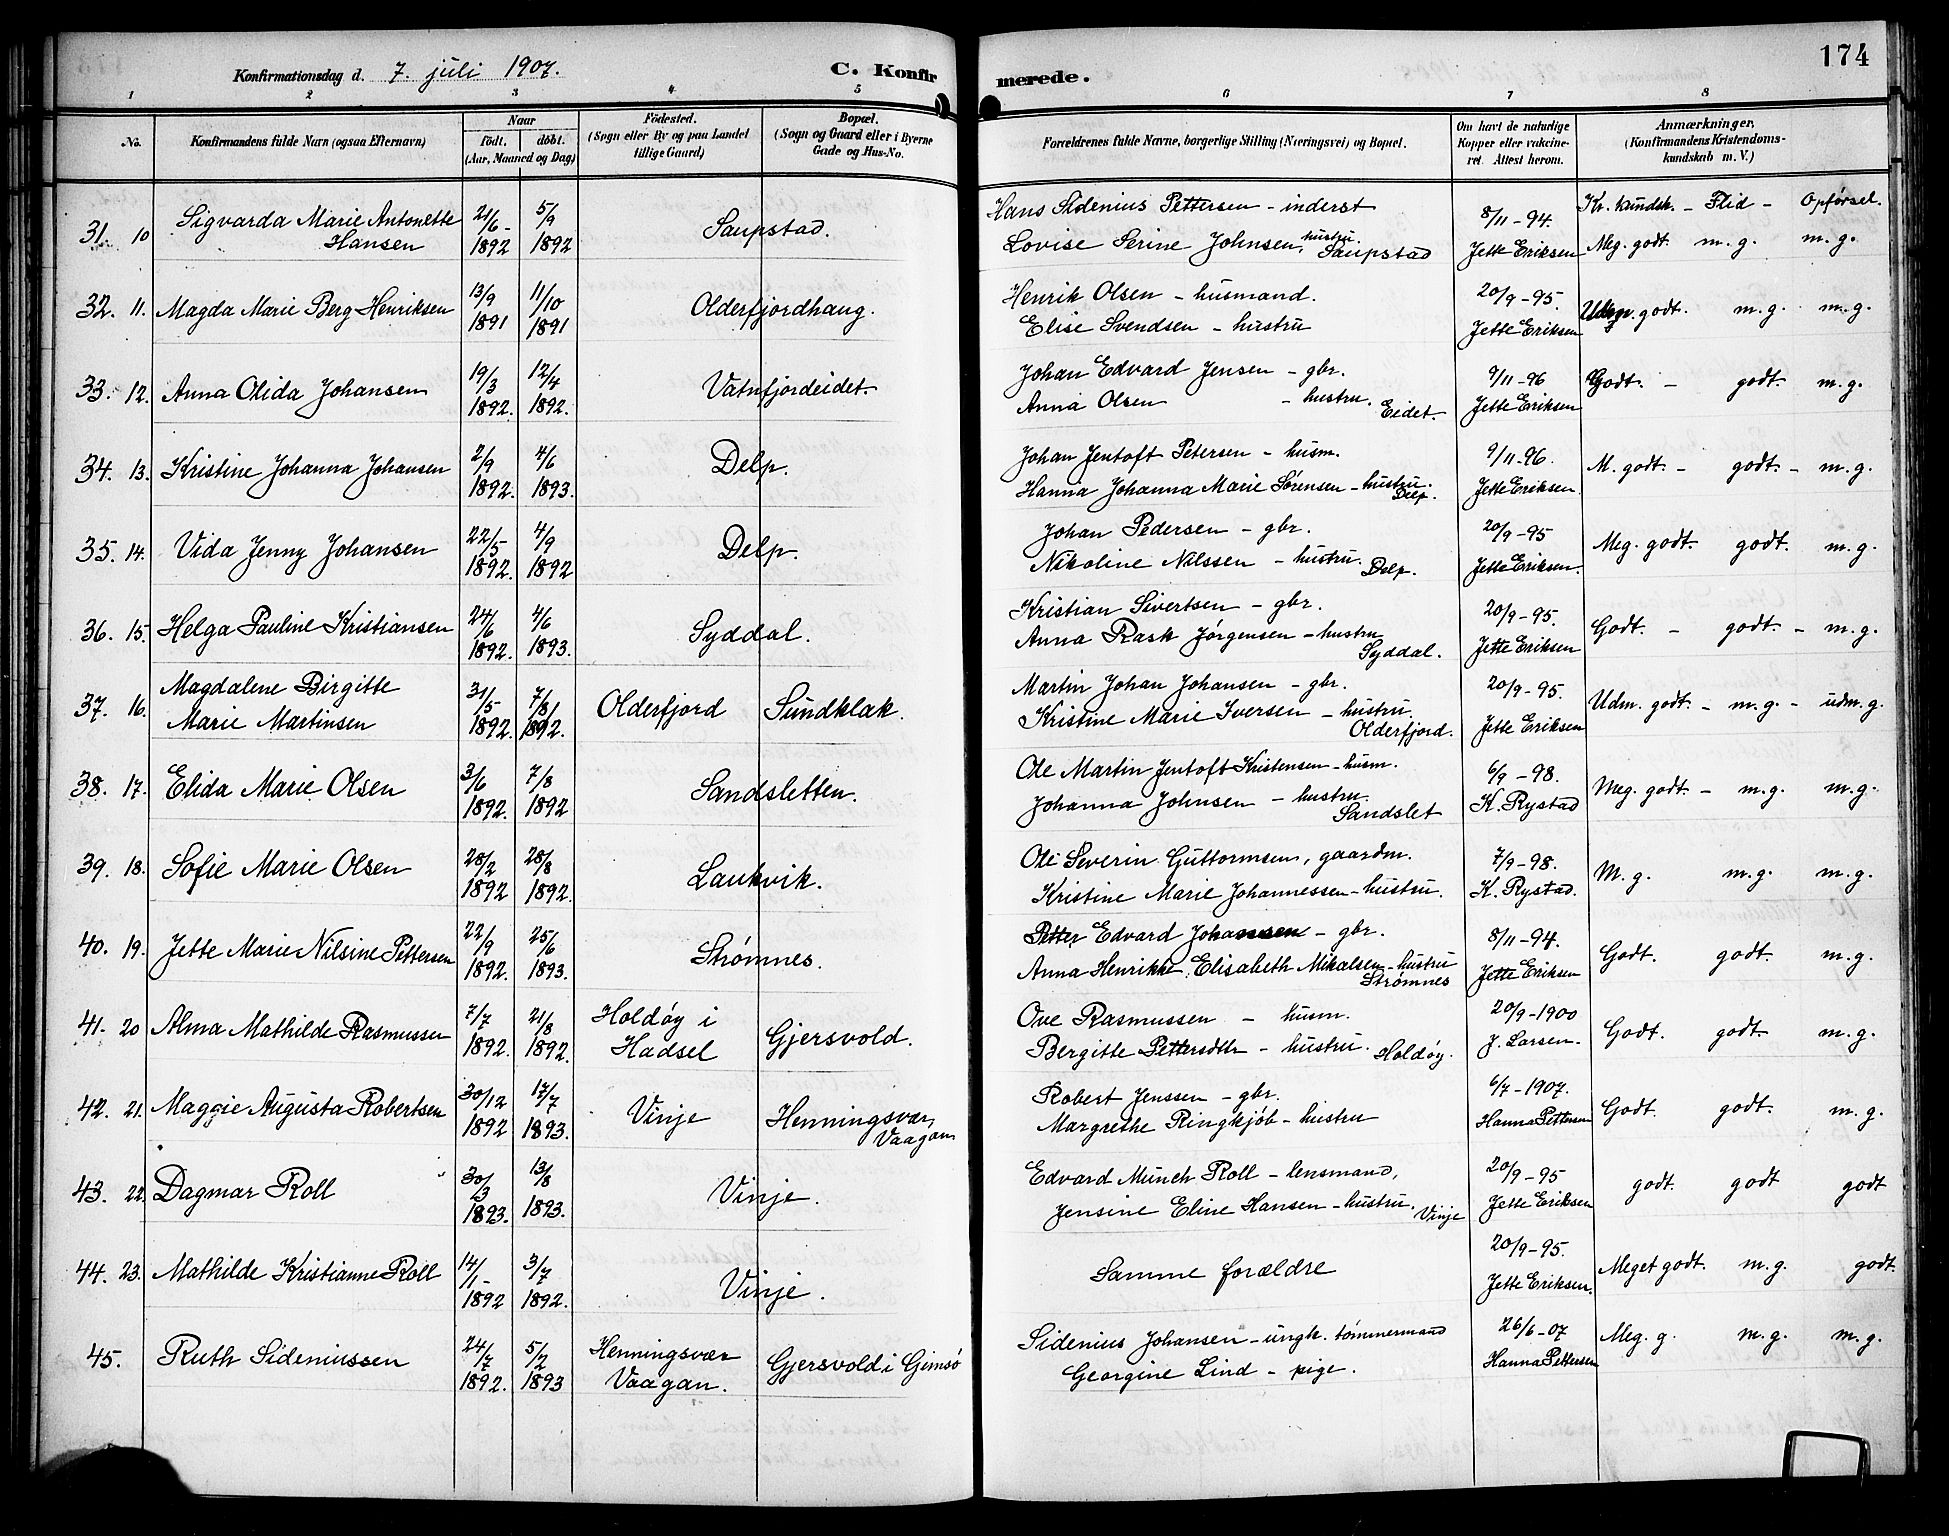 174
Konfirmationsdag d. 7. juli 1907. C. Konfirmerede.
1 2 3 4 5 6 7 8
No. Konfirmandens fulde Navn (ogsaa Efternavn) Naar født. døbt. (Aar, Maaned og Dag) Fødested. (Sogn eller By og paa Landet tillige Gaard) Bopæl. (Sogn og Gaard eller i Byerne Gade og Hus-No. Forældrenes fulde Navne, borgerlige Stilling (Næringsvei) og Bopæl. Om havt de naturlige Kopper eller vakcineret. Attest herom. Anmærkninger. (Konfirmandens Kristendomskundskab m. V.)
Kr. kundsk. – Flid – Opførsel.
31. 10 Sigvarda Marie Antonette Hansen 21/6 - 1892 5/9 1892 Saupstad. Hans Sidenius Pettersen – inderst
Lovise Serine Johnsen, hustru. Saupstad 8/11 – 94. Jette Eriksen Meg. godt. m. g. m. g.
32. 11. Magda Marie Berg Henriksen 13/9 1891 11/10 1891 Olderfjordhaug. Henrik Olsen – husmand.
Elise Svendsen – hustru 20/9 – 95. Jette Eriksen Udm. godt. m. g. m. g.
33. 12. Anna Olida Johansen 19/3 1892. 12/4 1892. Vatnfjordeidet. Johan Edvard Jensen – gbr.
Anna Olsen – hustru. Eidet. 9/11 – 96 Jette Eriksen Godt. – godt. m. g.
34. 13. Kristine Johanna Johansen 2/9 1892. 4/6 1893. Delp. Johan Jentoft Petersen – husm.
Hanna Johanna Marie Sørensen – hustru. Delp. 9/11 – 96. Jette Eriksen. M. godt. – godt. – m. g.
35. 14. Vida Jenny Johansen 22/5 1892. 4/9 1892 Delp. Johan Pedersen – gbr.
Nikoline Nilssen – hustru. Delp. 20/9 – 95 Jette Eriksen. Meg. godt. godt. m. g.
36. 15. Helga Pauline Kristiansen 24/6 1892. 4/6 1893. Syddal. Kristian Sivertsen – gbr.
Anna Rask Jørgensen – hustru Syddal. 20/9 – 95. Jette Eriksen Godt. – godt. – m. g.
37. 16. Magdalene Birgitte Marie Martinsen 31/5 1892. 7/8 1892. Olderfjord Sundklak. Martin Johan Johansen – gbr.
Kristine Marie Iversen – hustru. Olderfjord. 20/9 – 95. Jette Eriksen Udm. godt. – m. g. – udm. g.
38. 17. Elida Marie Olsen 3/6 1892. 7/8 1892 Sandsletten. Ole Martin Jentoft Kristensen – husm.
Johanna Johnsen – hustru. Sandslet 6/9 – 98. K. Rystad Meg. godt. – m. g. m. g.
39. 18. Sofie Marie Olsen 28/2 1892 28/8 1892. Laukvik. Ole Severin Guttormsen, gaardm.
Kristine Marie Johannessen – hustru. 7/9 – 98. K. Rystad. M. g. m. g. m. g.
40. 19. Jette Marie Nilsine Pettersen 22/9 1892. 25/6 1893. Strømnes. Petter Edvard Johansen – gbr.
Anna Henrikke Elisabeth Mikalsen – hustru Strømnes 8/11 – 94. Jette Eriksen Godt. godt. m. g.
41. 20 Alma Mathilde Rasmussen 7/7 1892. 21/8 1892. Holdøy i Hadsel Gjersvold. Ove Rasmussen – husm.
Bergitte Pettersdtr – hustru. Holdøy. 20/9 – 1900 J. Larsen. Godt. godt. m. g.
42. 21. Maggie Augusta Robertsen 30/12 1892 17/7 1893. Vinje Henningsvær, Vaagan Robert Jenssen – gbr.
Margrethe Ringkjøb – hustru 6/7 – 1907. Hanna Pettersen Godt. godt. m. g.
43. 22. Dagmar Roll 30/3 1893. 13/8 1893. Vinje. Edvard Münch Roll – lensmand,
Jensine Eline Hansen – hustru. Vinje 20/9 – 95 Jette Eriksen godt. godt godt
44. 23. Mathilde Kristianne Roll 14/1 - 1892 3/7 1892. Vinje. Samme forældre 20/9 – 95. Jette Eriksen. Meget godt. m. g. godt.
45. Ruth Sideniussen 24/7 1892. 5/2 1893 Henningsvær Vaagan. Gjersvold i Gimsø Sidenius Johansen – ungk. tømmermand
Georgine Lind – pige. 26/6 – 07 Hanna Pettersen Meg. g. m. g. m. g.